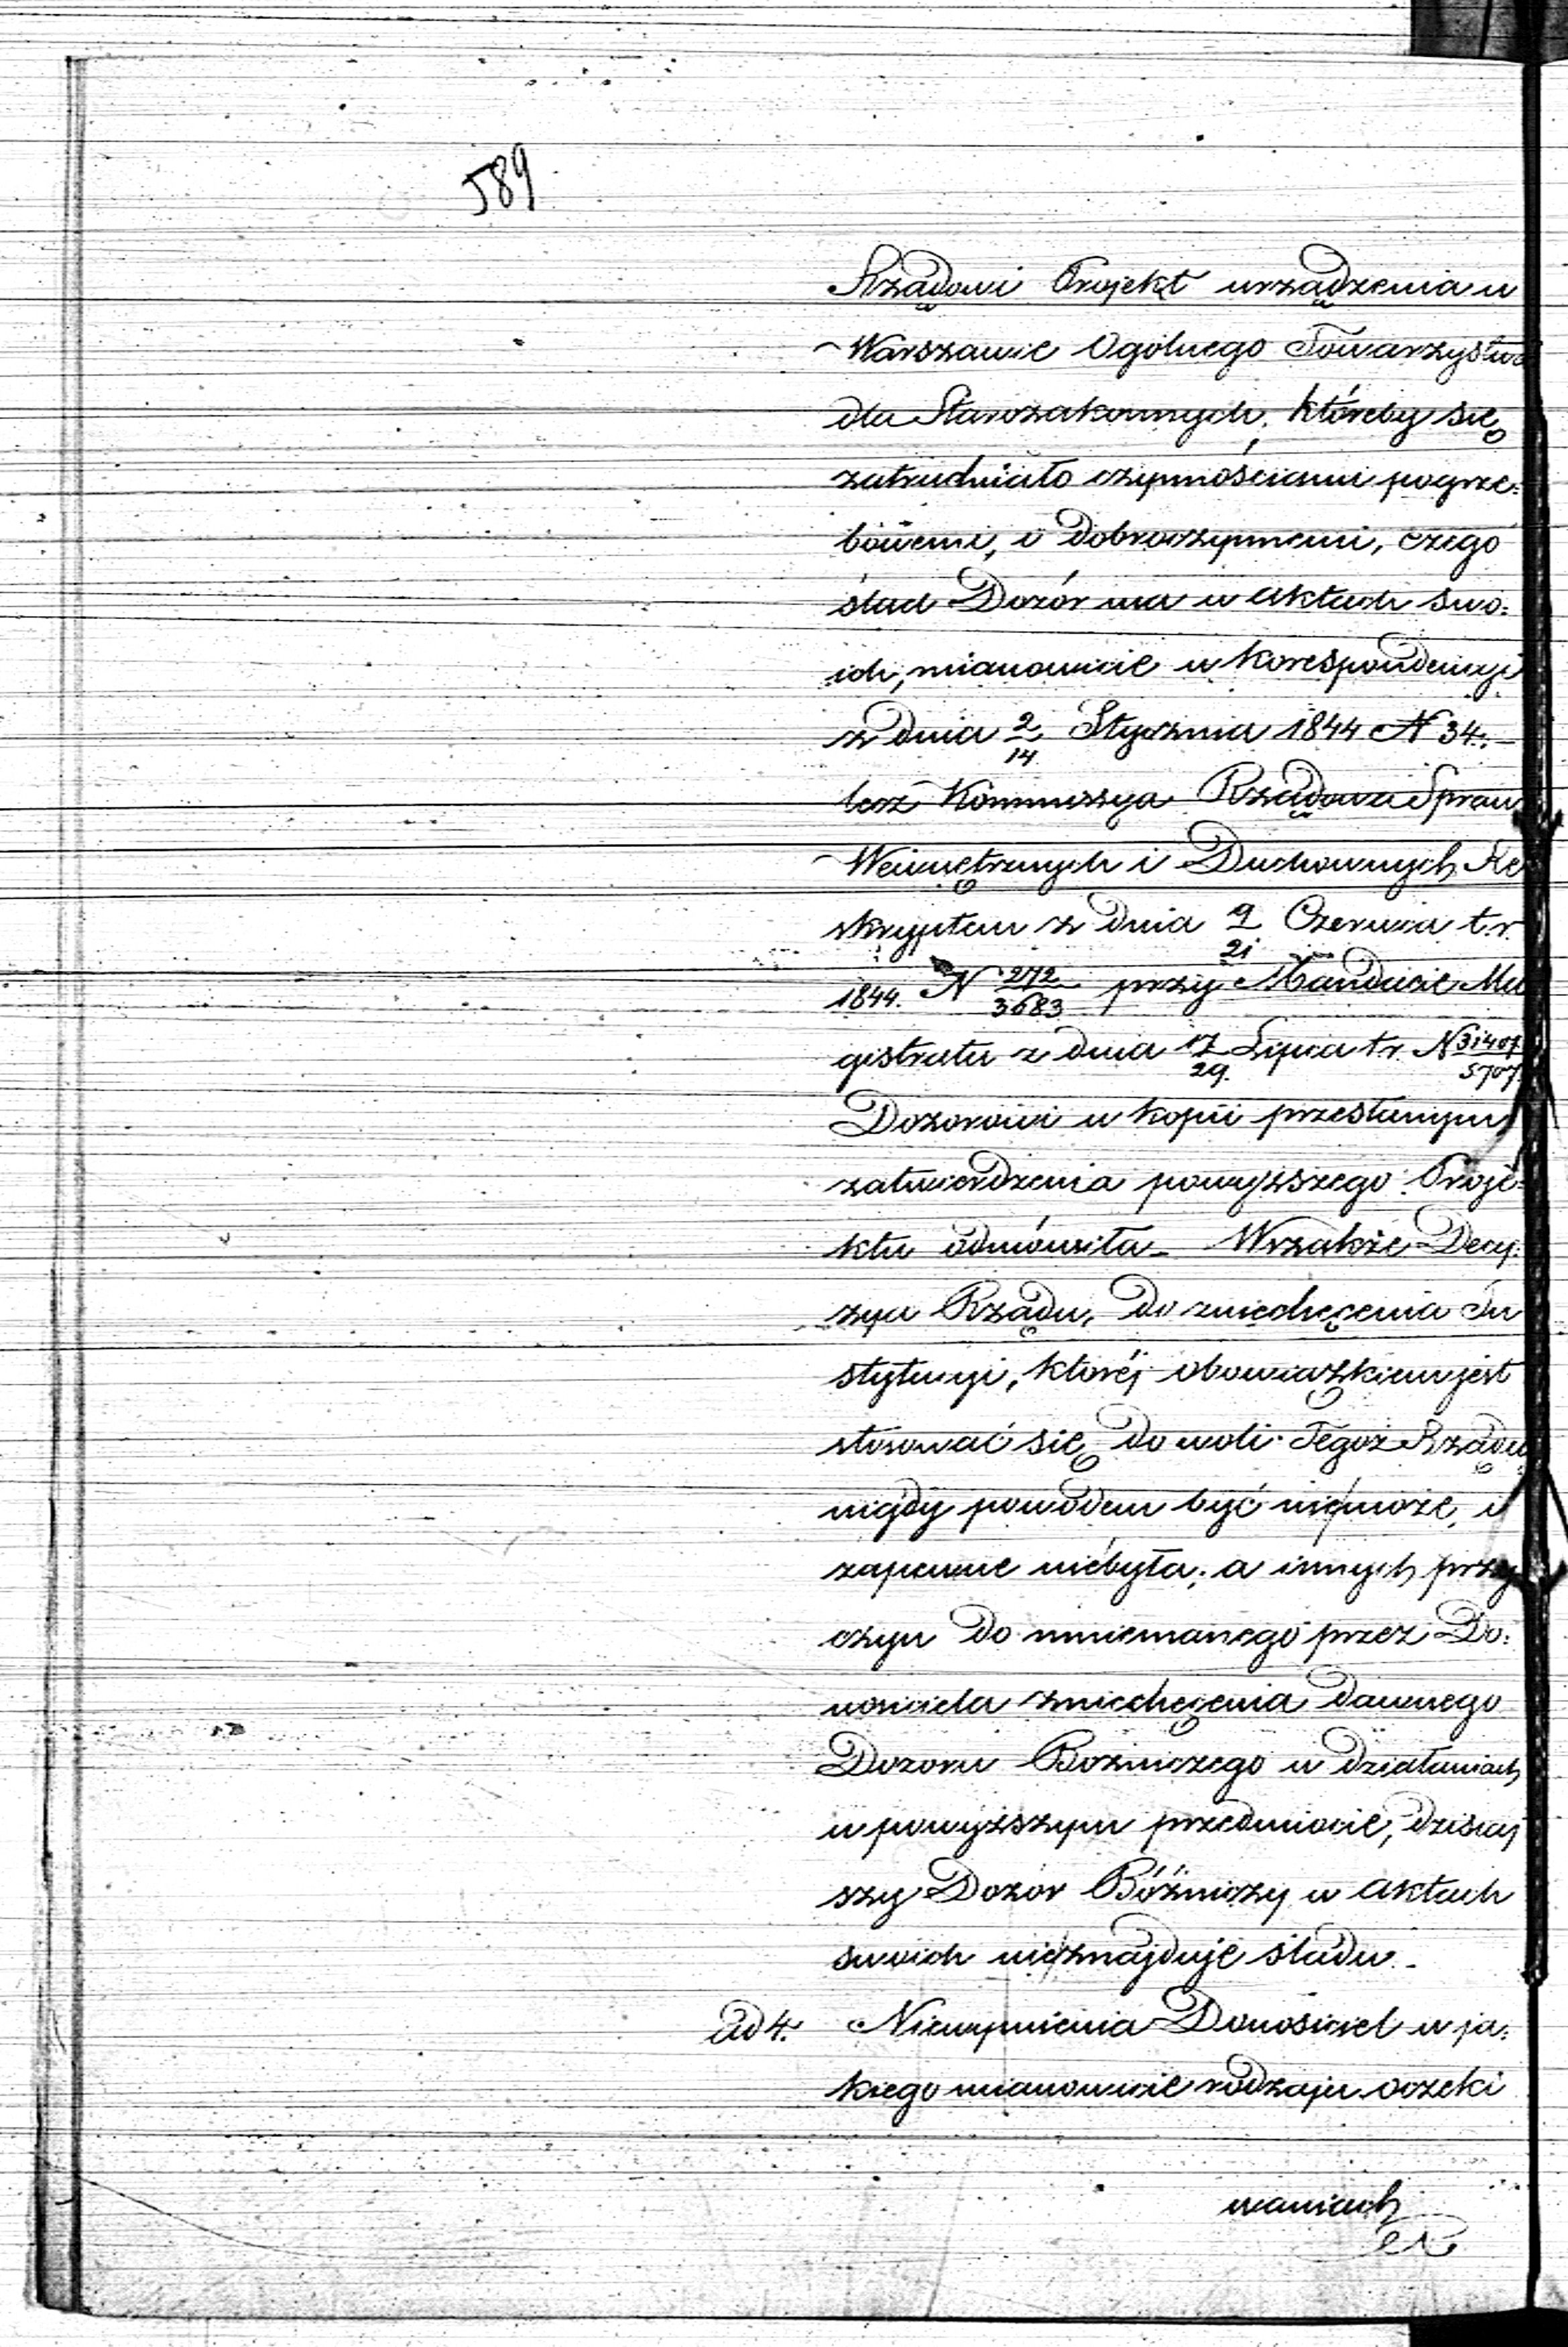 589
Rządowi Projekt urządzenia w
Warszawie Ogólnego Towarzystwa
dla Starozakonnych, któreby się
zatrudniało czynnościami pogrze:
bowemi, i dobroczynnemi, czego
ślad Dozór ma w aktach swo:
ich, mianowicie w korespondencyi
z dnia 2/14 Stycznia 1844 N 34. –
lecz Kommissya Rządowa Spraw
Wewnętrznych i Duchownych Re
skryptem z dnia 9/21 Czerwca t. r.
1844. N 272/3683 przy Mandacie Ma
gistratu z dnia 17/29 Lipca t r. N 31407/5707
Dozorowi w kopii przesłanym,
zatwierdzenia powyższego Proje-
ktu odmówiła – Wszakże Decy:
zya Rządu, do zniechęcenia In
stytucyi, któréj obowiązkiem jest
stosować się do woli Tegoż Rządu,
nigdy powodem być nie/może, i
zapewne niebyła; a innych przy
czyn do mniemanego przez Do:
nosiciela zniechęcenia dawnego
Dozoru Bozniczego w działaniach
w powyższym przedmiocie, dzisiej
szy Dozór Bóżniczy w aktach
swoich nie/znajduje śladu. –
ad 4. Niewymienia Donosiciel w ja:
kiego mianowicie rodzaju oczeki
waniach